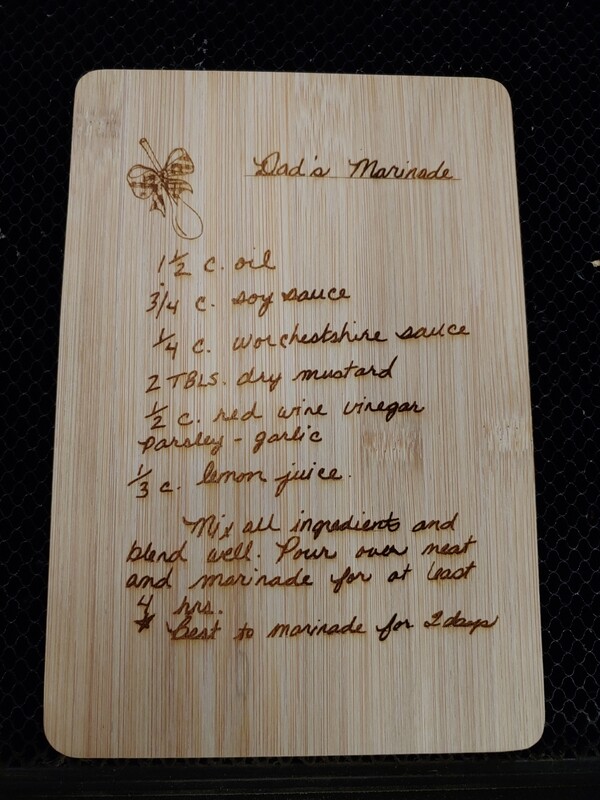 Dad's Marinade
1 1/2 c. oil
3/4 c. soy sauce
1/4 c. worchestshire sauce
2 TBLS. dry mustard
1/2 c. red wine vinegar
parsley - garlic
1/3 c. lemon juice.
Mix all ingredients and
blend well. Pour over meat
and marinade for at least
4 hrs.
* Best to marinade for 2 days